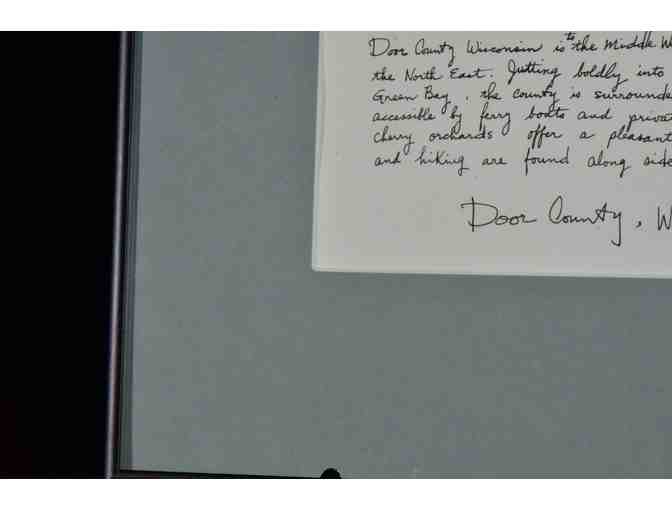 Door County Wisconsin is to the Middle W
the North East. Jutting boldly into
Green Bay, the county is surrounde
accessible by ferry boats and priva
cherry orchards offer a pleasant
and hiking are found along side
Door County, W